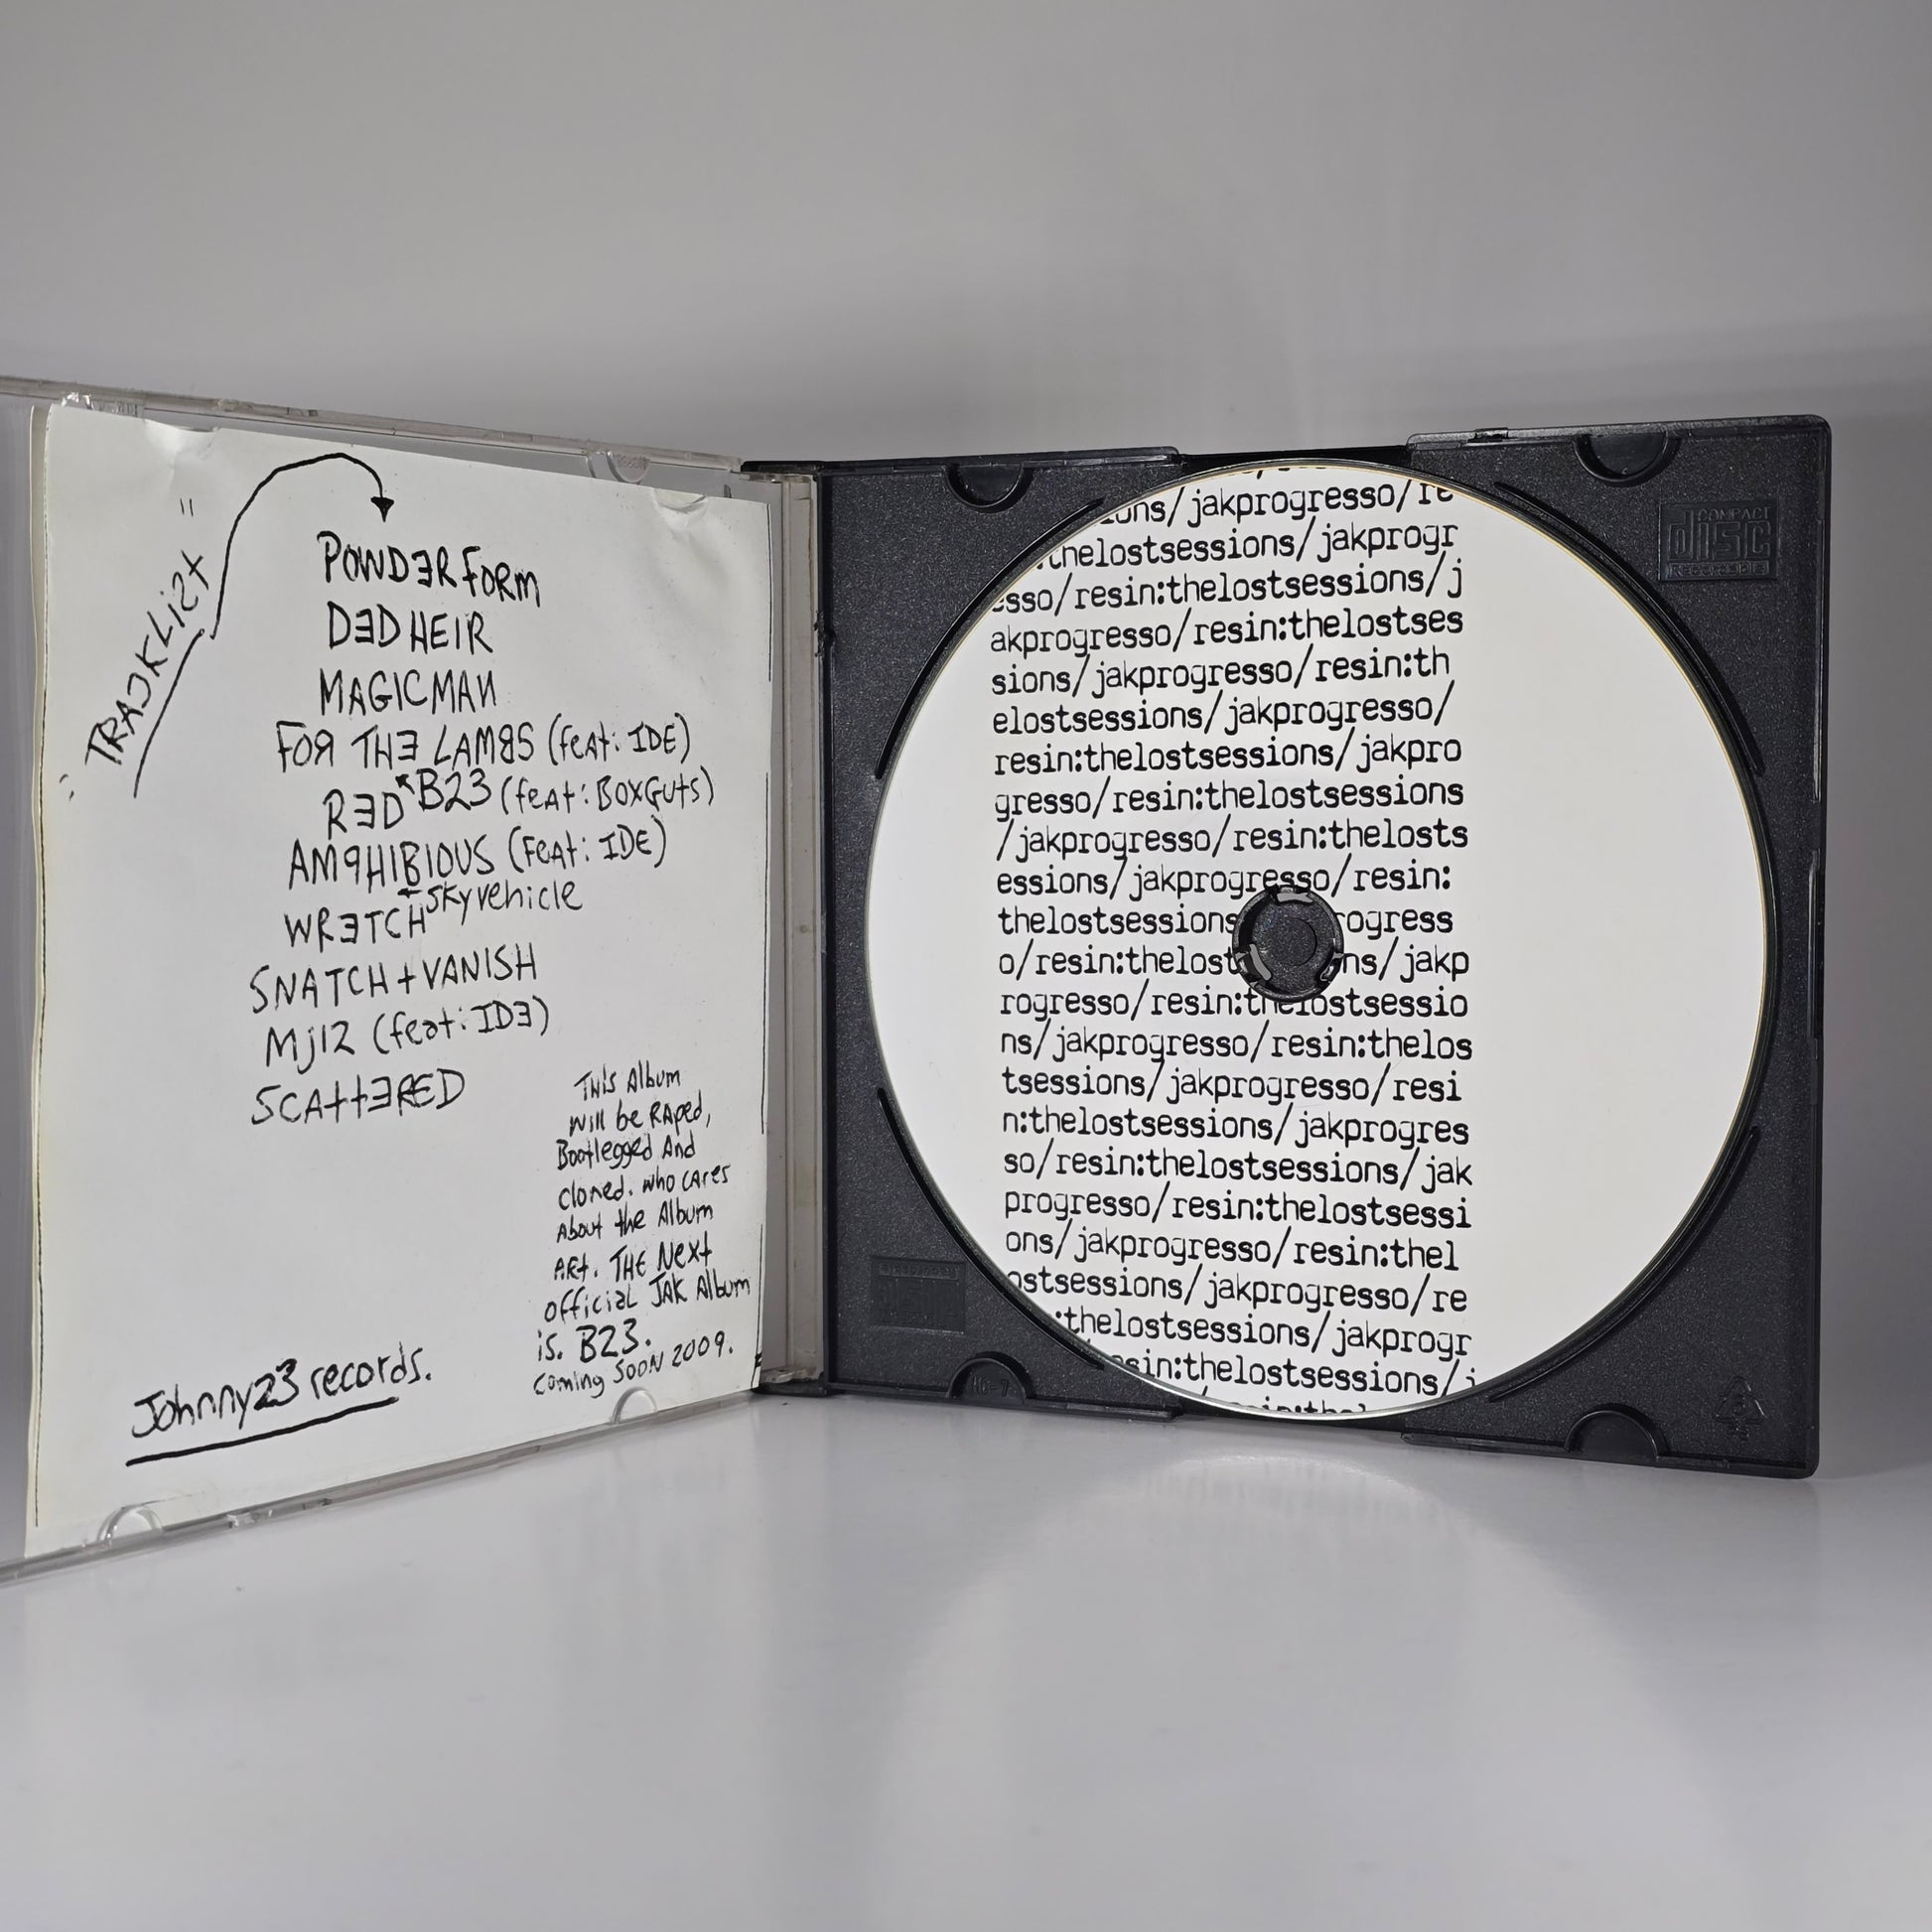 "TRACKLIST"
POWDER FORM
DED HEIR
MAGICMAN
FOR THE LAMBS (feAt: IDE)
RED B23 (feAt: BOXGUtS)
AMPHIBIOUS (FEAt: IDE)
WRETCH SKYvehicle
SNATCH + VANISH
Mj12 (feat: IDE)
SCAttERED
THis Album
will be RAped,
Bootlegged And
cloned. who cAres
About the Album
ARt. THE Next
officiaL JAK Album
is. B23.
coming SOON 2009.
Johnny23 records.
ions/jakprogresso/re
:thelostsessions/jakprogr
esso/resin:thelostsessions/j
akprogresso/resin:thelostses
sions/jakprogresso/resin:th
elostsessions/jakprogresso/
resin:thelostsessions/jakpro
gresso/resin:thelostsessions
/jakprogresso/resin:thelosts
essions/jakprogresso/resin:
thelostsessions rogress
o/resin:thelost ns/jakp
rogresso/resin:thelostsessio
ns/jakprogresso/resin:thelos
tsessions/jakprogresso/resi
n:thelostsessions/jakprogres
so/resin:thelostsessions/jak
progresso/resin:thelostsessi
ons/jakprogresso/resin:thel
ostsessions/jakprogresso/re
:thelostsessions/jakprogr
sin:thelostsessions/j
COMPACT
disc
Recordable